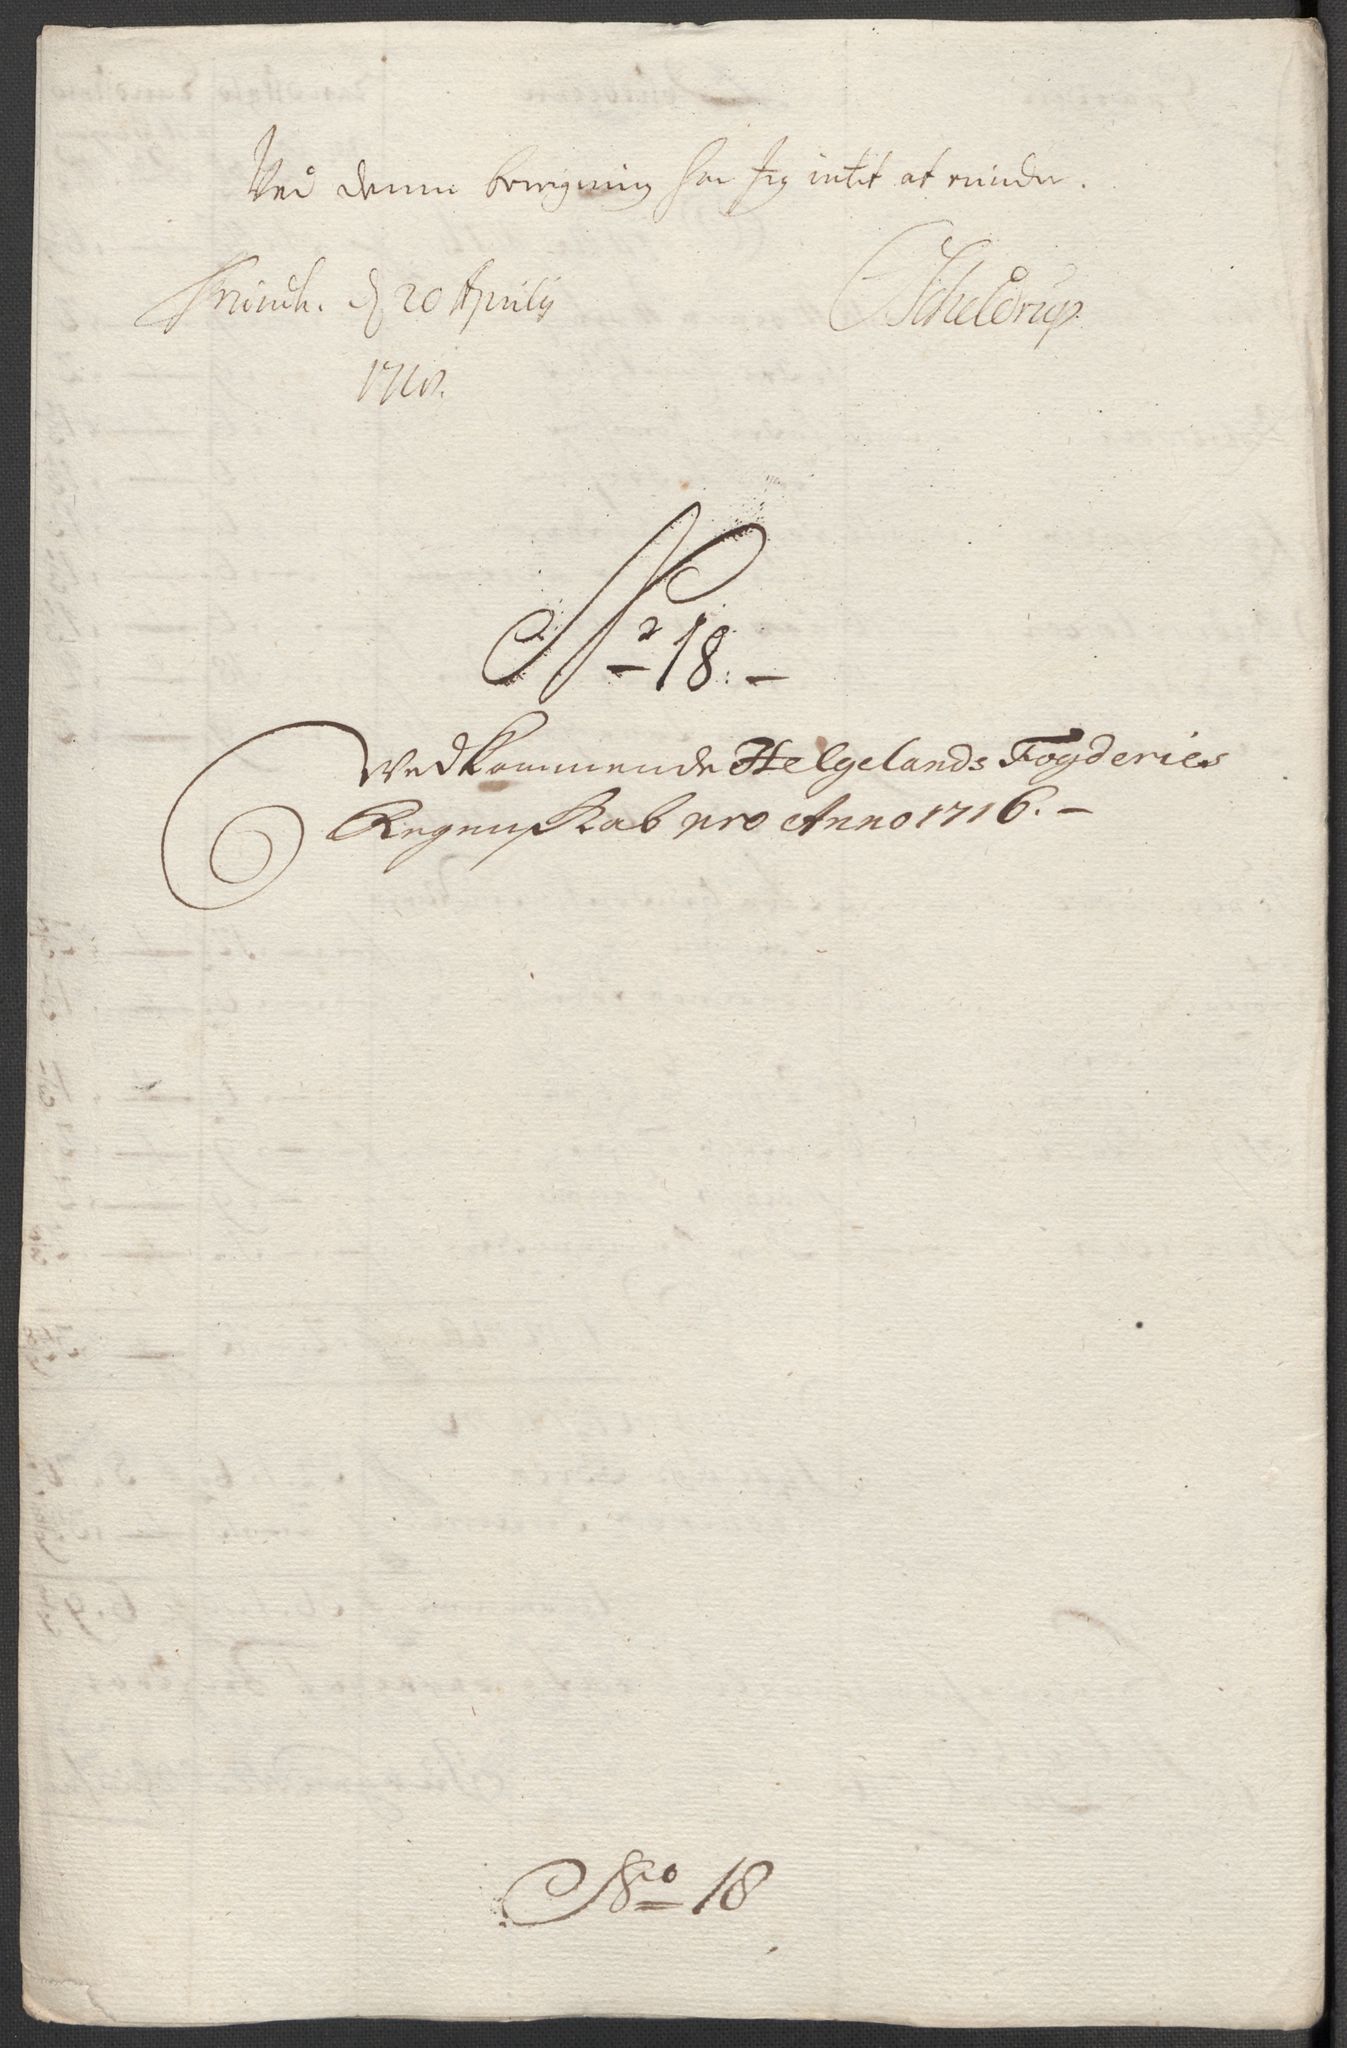 Ved denne beregning har Jeg intet at erindre.
Trundh. d 20 Aprilij
CScheldrup
1718.
No 18.
Vedkommende Helgelands Fogderies
Regenskab pro Anno 1716.
No 18